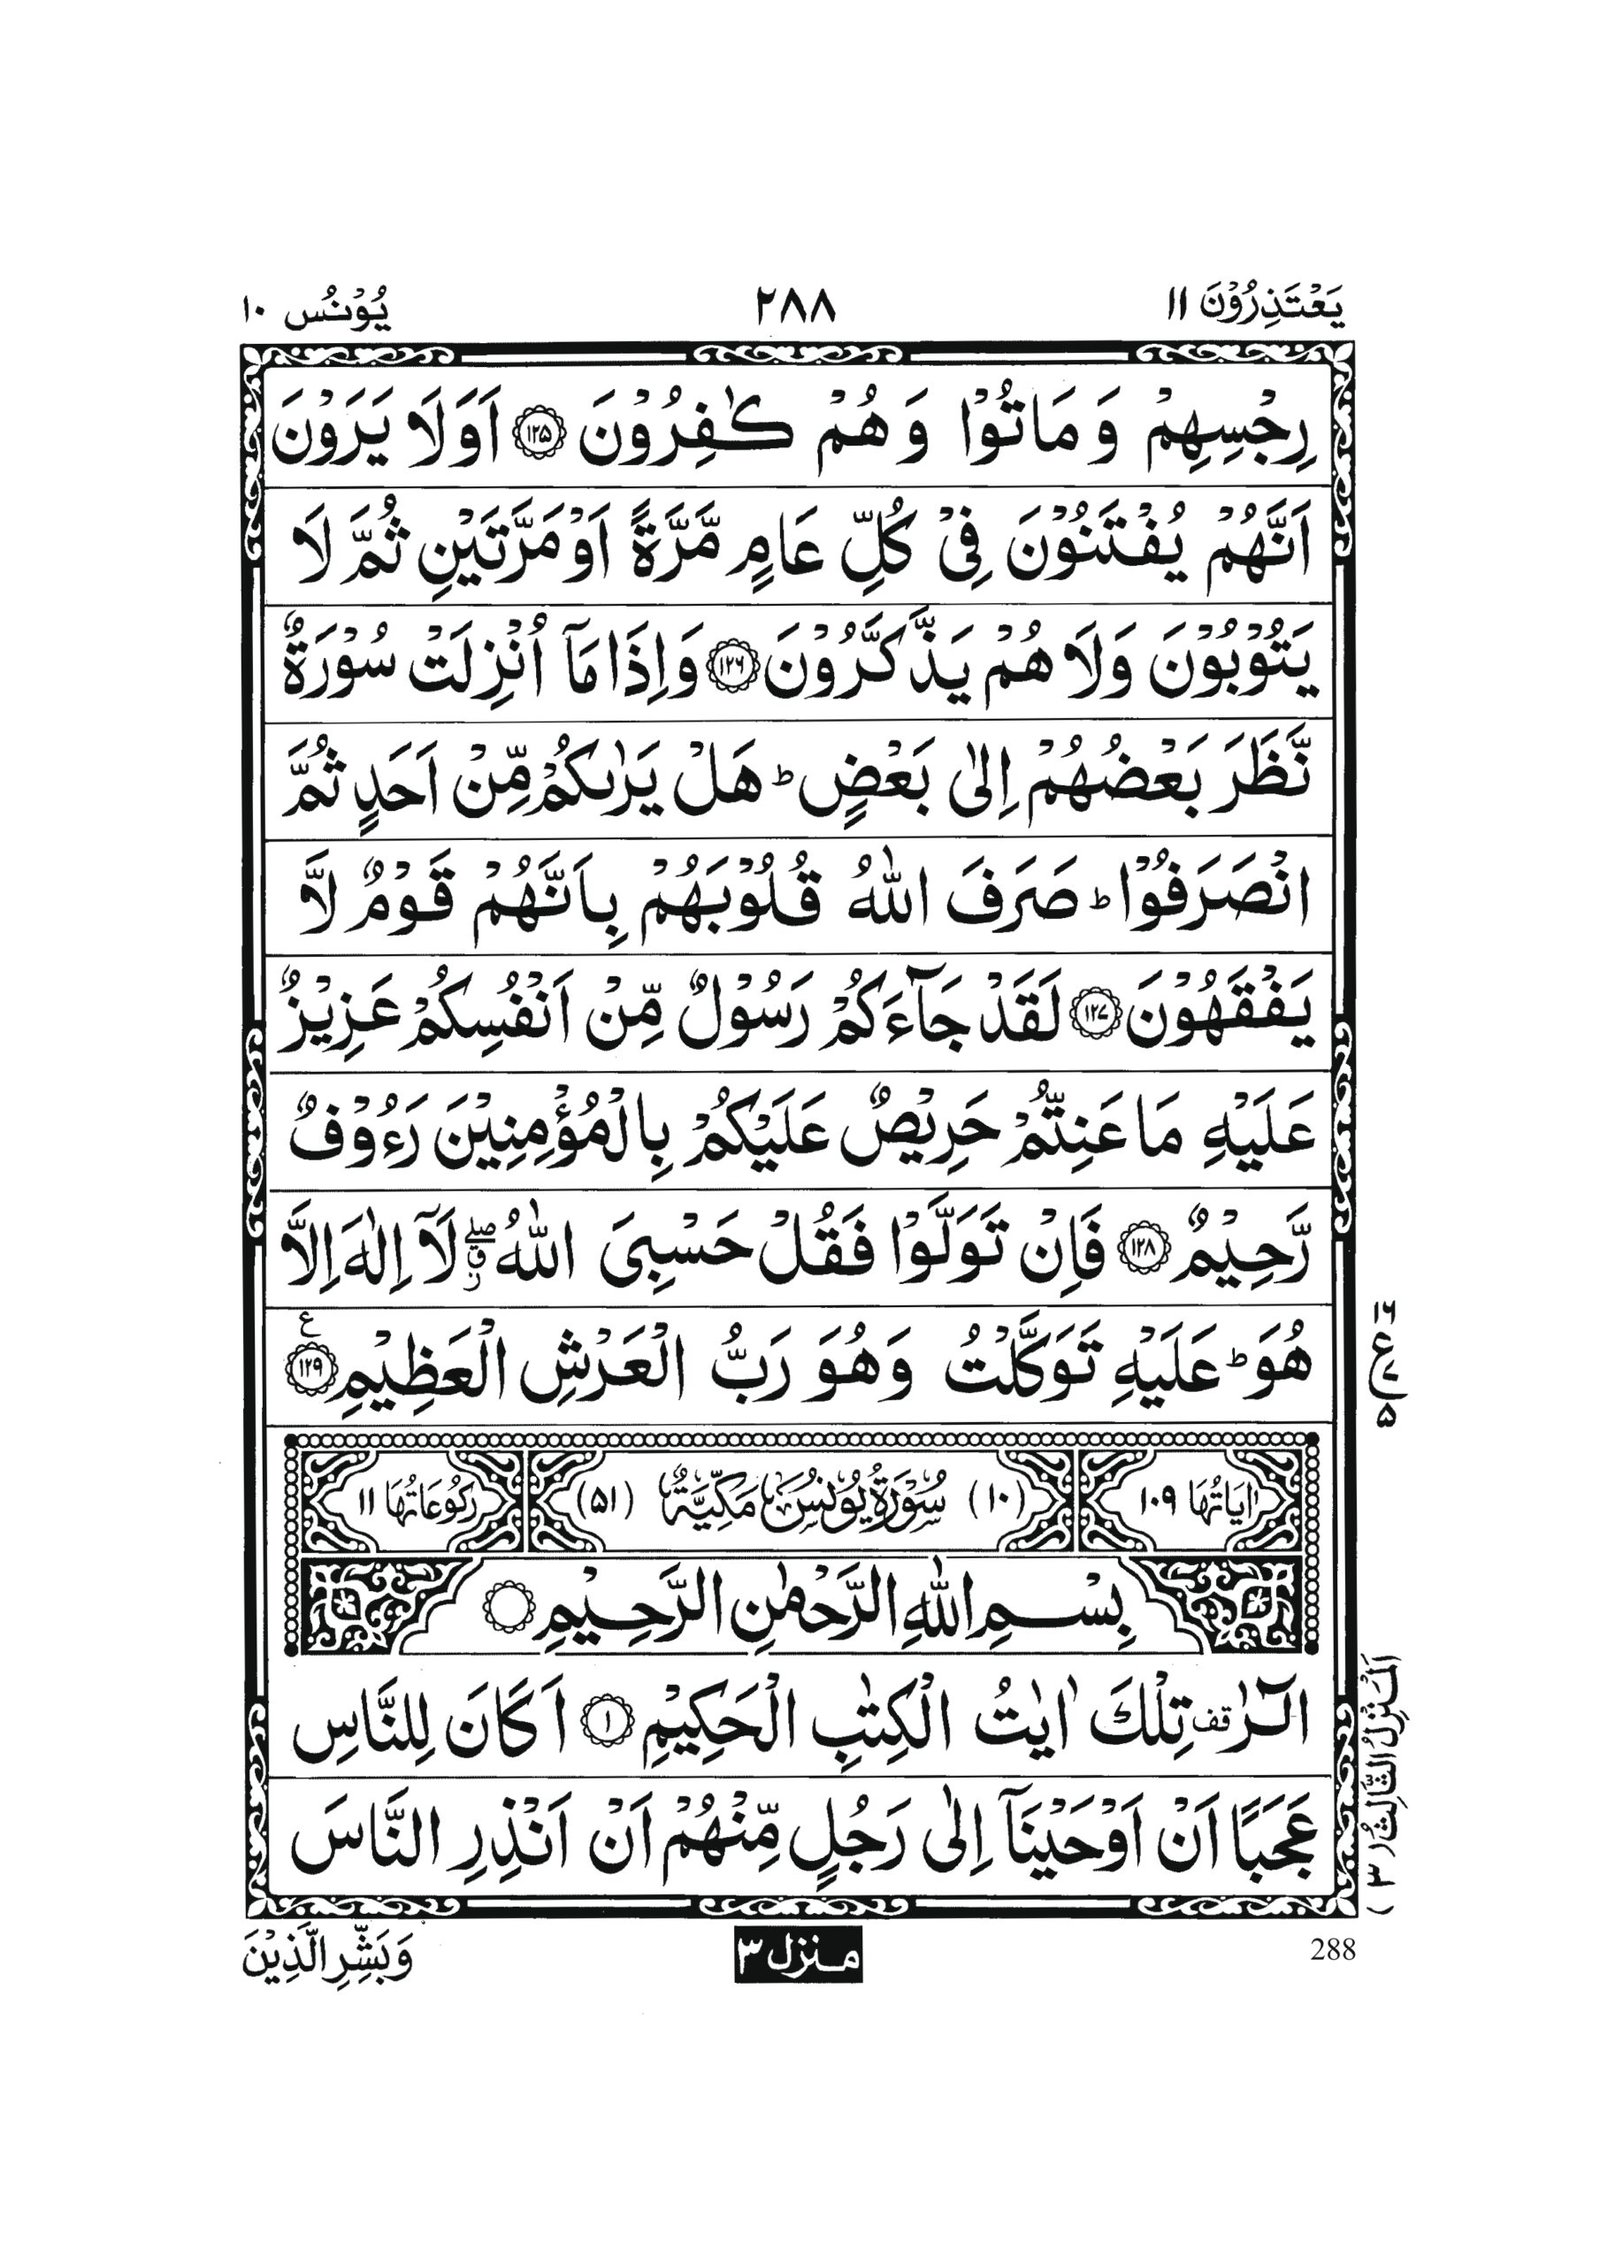 يَعْتَذِرُوْنَ ١١
٢٨٨
يُوْنُس ١٠
رِجْسِهِمْ وَ مَاتُوْا وَ هُمْ كٰفِرُوْنَ ١٢٥ اَوَلَا يَرَوْنَ
اَنَّهُمْ يُفْتَنُوْنَ فِيْ كُلِّ عَامٍ مَّرَّةً اَوْ مَرَّتَيْنِ ثُمَّ لَا
يَتُوْبُوْنَ وَلَا هُمْ يَذَّكَّرُوْنَ ١٢٦ وَاِذَا مَآ اُنْزِلَتْ سُوْرَةٌ
نَّظَرَ بَعْضُهُمْ اِلٰى بَعْضٍ ؕ هَلْ يَرٰىكُمْ مِّنْ اَحَدٍ ثُمَّ
انْصَرَفُوْا ؕ صَرَفَ اللّٰهُ قُلُوْبَهُمْ بِاَنَّهُمْ قَوْمٌ لَّا
يَفْقَهُوْنَ ١٢٧ لَقَدْ جَآءَكُمْ رَسُوْلٌ مِّنْ اَنْفُسِكُمْ عَزِيْزٌ
عَلَيْهِ مَا عَنِتُّمْ حَرِيْصٌ عَلَيْكُمْ بِالْمُؤْمِنِيْنَ رَءُوْفٌ
رَّحِيْمٌ ١٢٨ فَاِنْ تَوَلَّوْا فَقُلْ حَسْبِيَ اللّٰهُ ۖ ق ز لَآ اِلٰهَ اِلَّا
هُوَ ؕ عَلَيْهِ تَوَكَّلْتُ وَهُوَ رَبُّ الْعَرْشِ الْعَظِيْمِ ١٢٩ ع
١٦
ع
٥
اٰيَاتُهَا ١٠٩
(١٠) سُوْرَةُ يُوْنُسَ مَكِّيَّةٌ (٥١)
رُكُوْعَاتُهَا ١١
بِسْمِ اللّٰهِ الرَّحْمٰنِ الرَّحِيْمِ
الٓرٰ قف تِلْكَ اٰيٰتُ الْكِتٰبِ الْحَكِيْمِ ١ اَكَانَ لِلنَّاسِ
عَجَبًا اَنْ اَوْحَيْنَآ اِلٰى رَجُلٍ مِّنْهُمْ اَنْ اَنْذِرِ النَّاسَ
اَلْمَنْزِلُ الثَّالِثُ ٣)
288
منزل ٣
وَبَشِّرِ الَّذِيْنَ